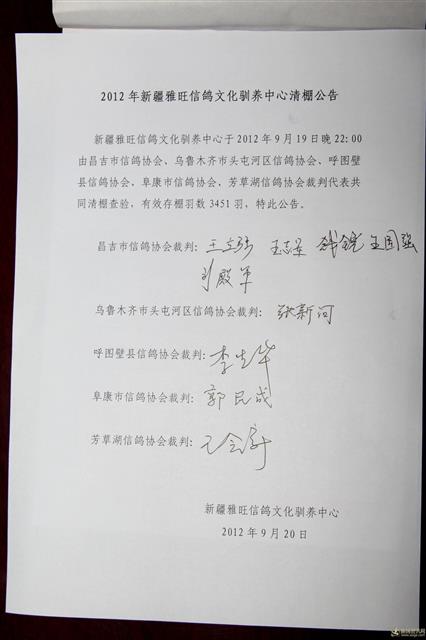 2012年新疆雅旺信鸽文化驯养中心清棚公告
新疆雅旺信鸽文化驯养中心于2012年9月19日晚22:00
由昌吉市信鸽协会、乌鲁木齐市头屯河区信鸽协会、呼图壁
县信鸽协会、阜康市信鸽协会、芳草湖信鸽协会裁判代表共
同清棚查验，有效存棚羽数3451羽，特此公告。
昌吉市信鸽协会裁判：王立强 王国强
刘殿军
乌鲁木齐市头屯河区信鸽协会裁判：张新河
呼图壁县信鸽协会裁判：李生华
阜康市信鸽协会裁判：郭民成
芳草湖信鸽协会裁判：
新疆雅旺信鸽文化驯养中心
2012年9月20日